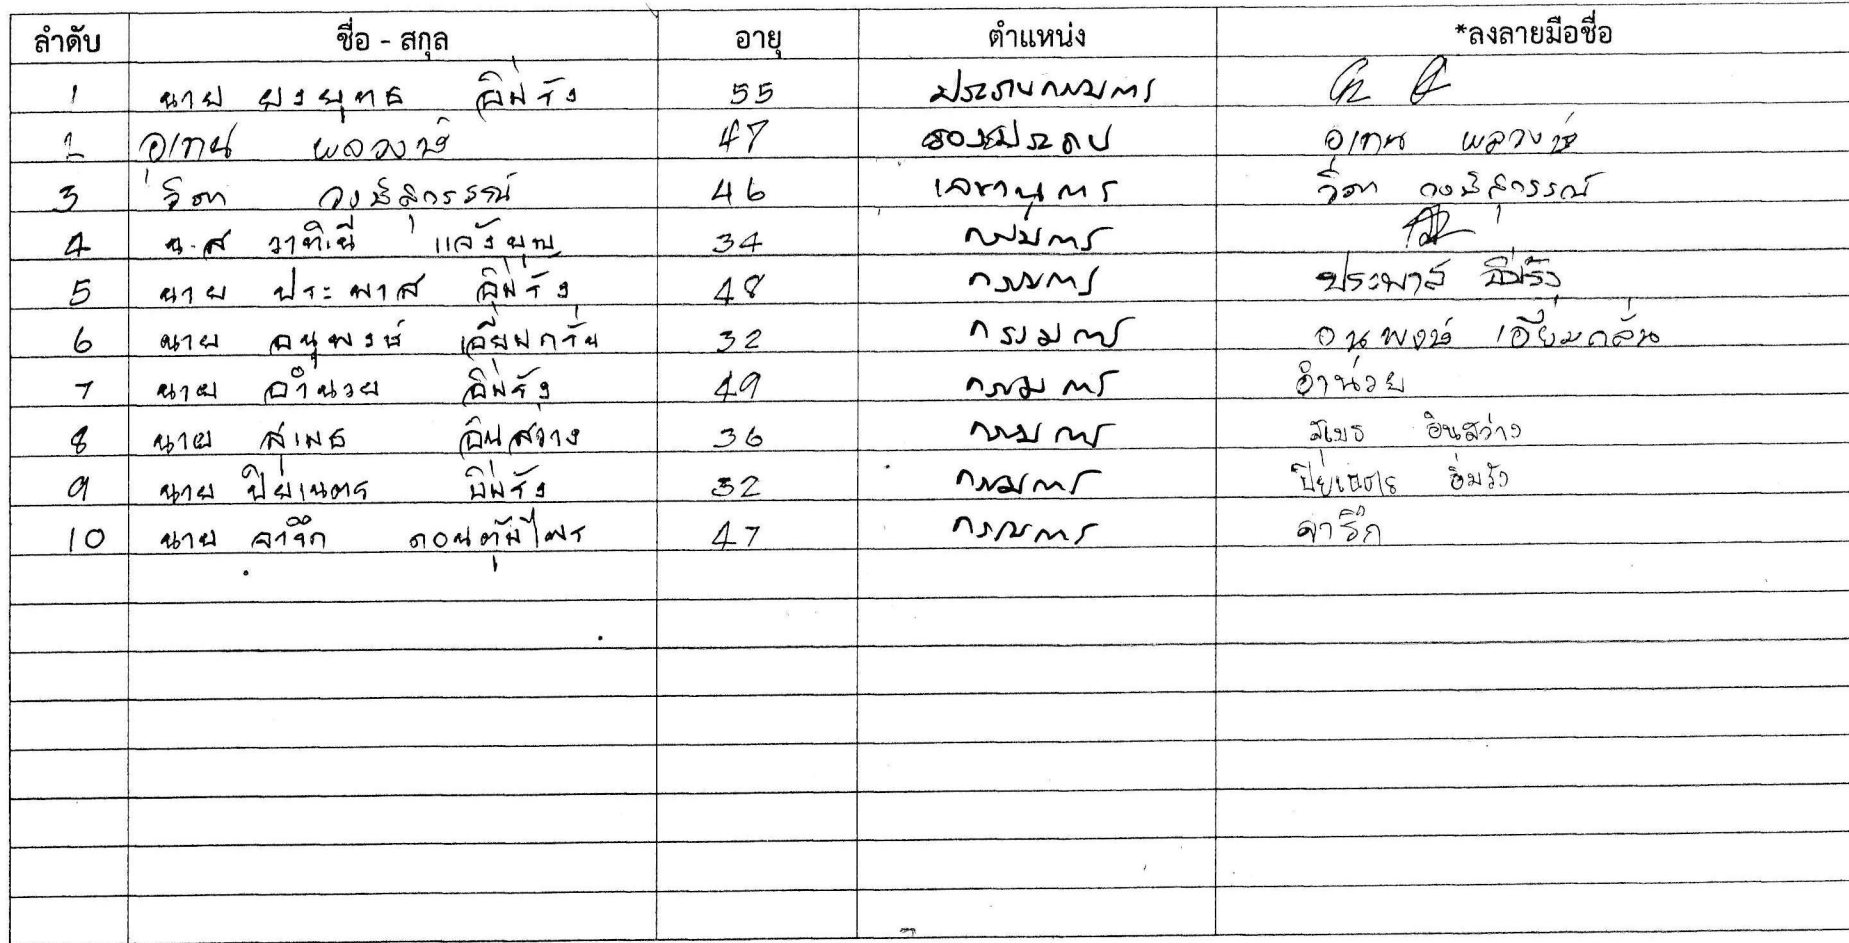 ลำดับ ชื่อ - สกุล อายุ ตำแหน่ง *ลงลายมือชื่อ
1 นาย ยงยุทธ อิ่มรัง 55 ประธานกรรมการ
2 อุเทน พลวงษ์ 47 รองประธาน อุเทน พลวงษ์
3 วงษ์สุวรรณ์ 46 เลขานุการ วงษ์สุวรรณ์
4 น.ส วาทินี 34 กรรมการ
5 นาย ประพาส อิ่มรัง 48 กรรมการ ประพาส อิ่มรัง
6 นาย อนุพงษ์ เอี่ยมกลั่น 32 กรรมการ อนุพงษ์ เอี่ยมกลั่น
7 นาย อำนวย อิ่มรัง 49 กรรมการ อำนวย
8 นาย สุเมธ อินสว่าง 36 กรรมการ สุเมธ อินสว่าง
9 นาย ปิยะเนตร อิ่มรัง 32 กรรมการ อิ่มรัง
10 นาย จารึก ดอนตุ้มไพร 47 กรรมการ จารึก